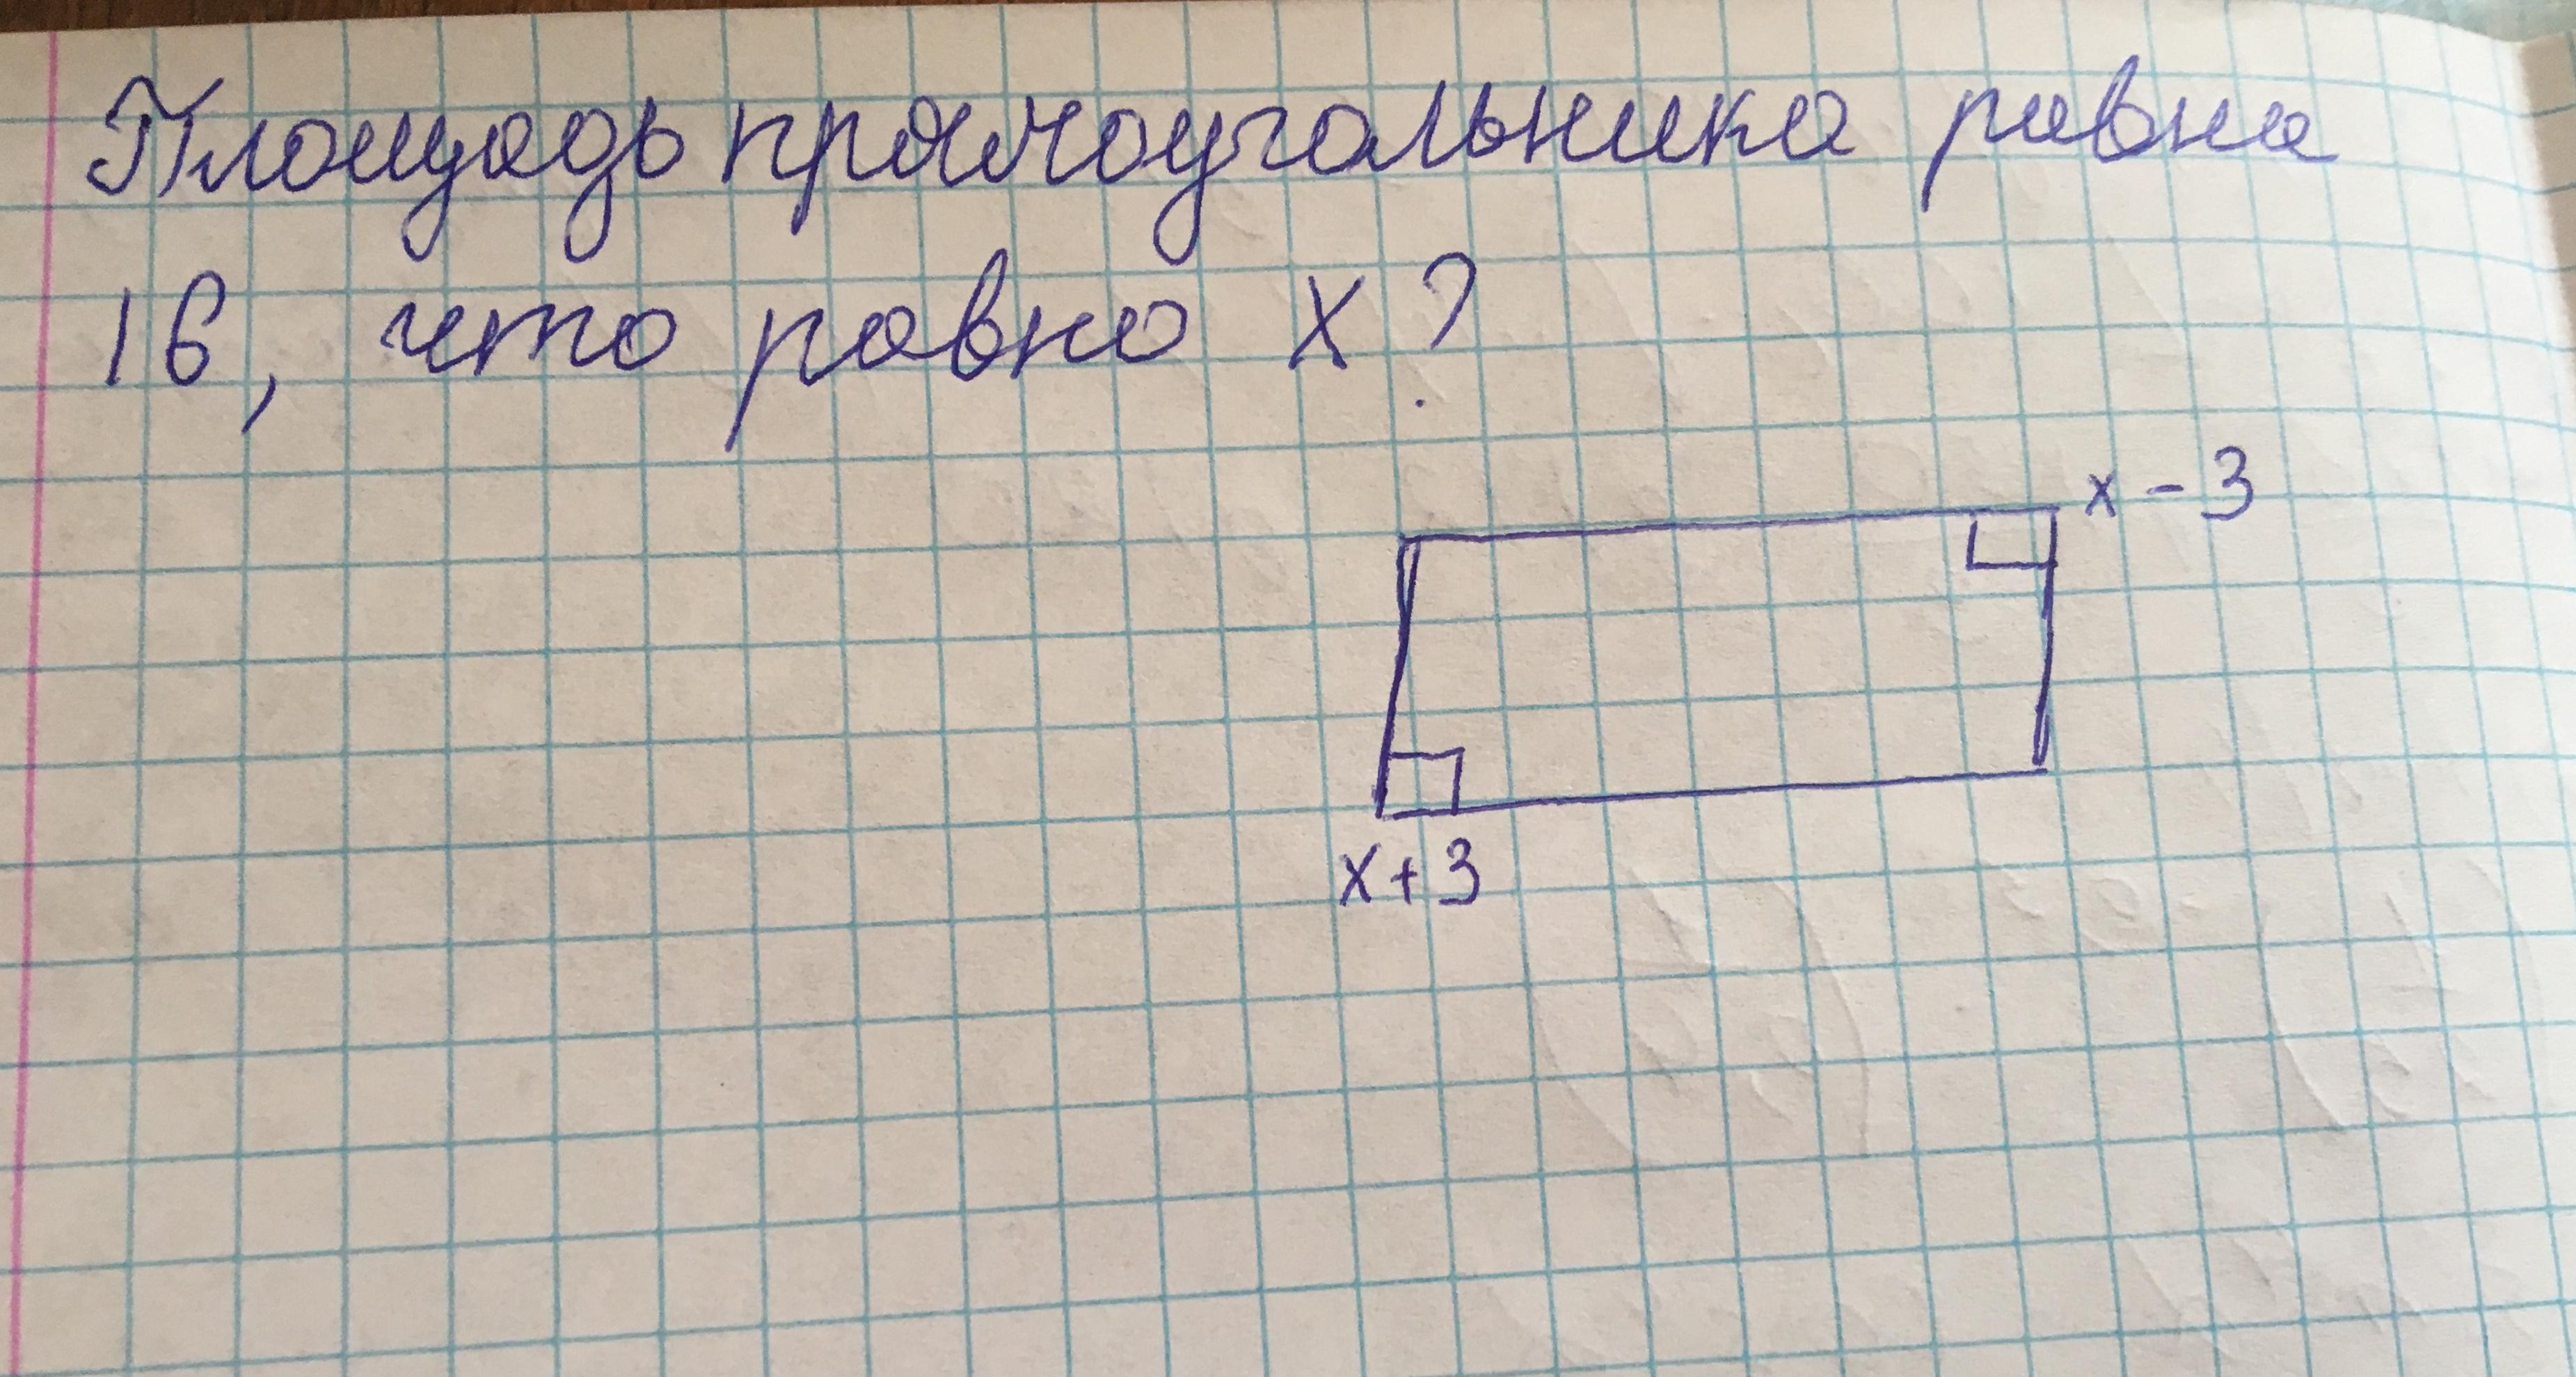 Площадь прямоугольника равна
16, что равно x?
x - 3
x + 3